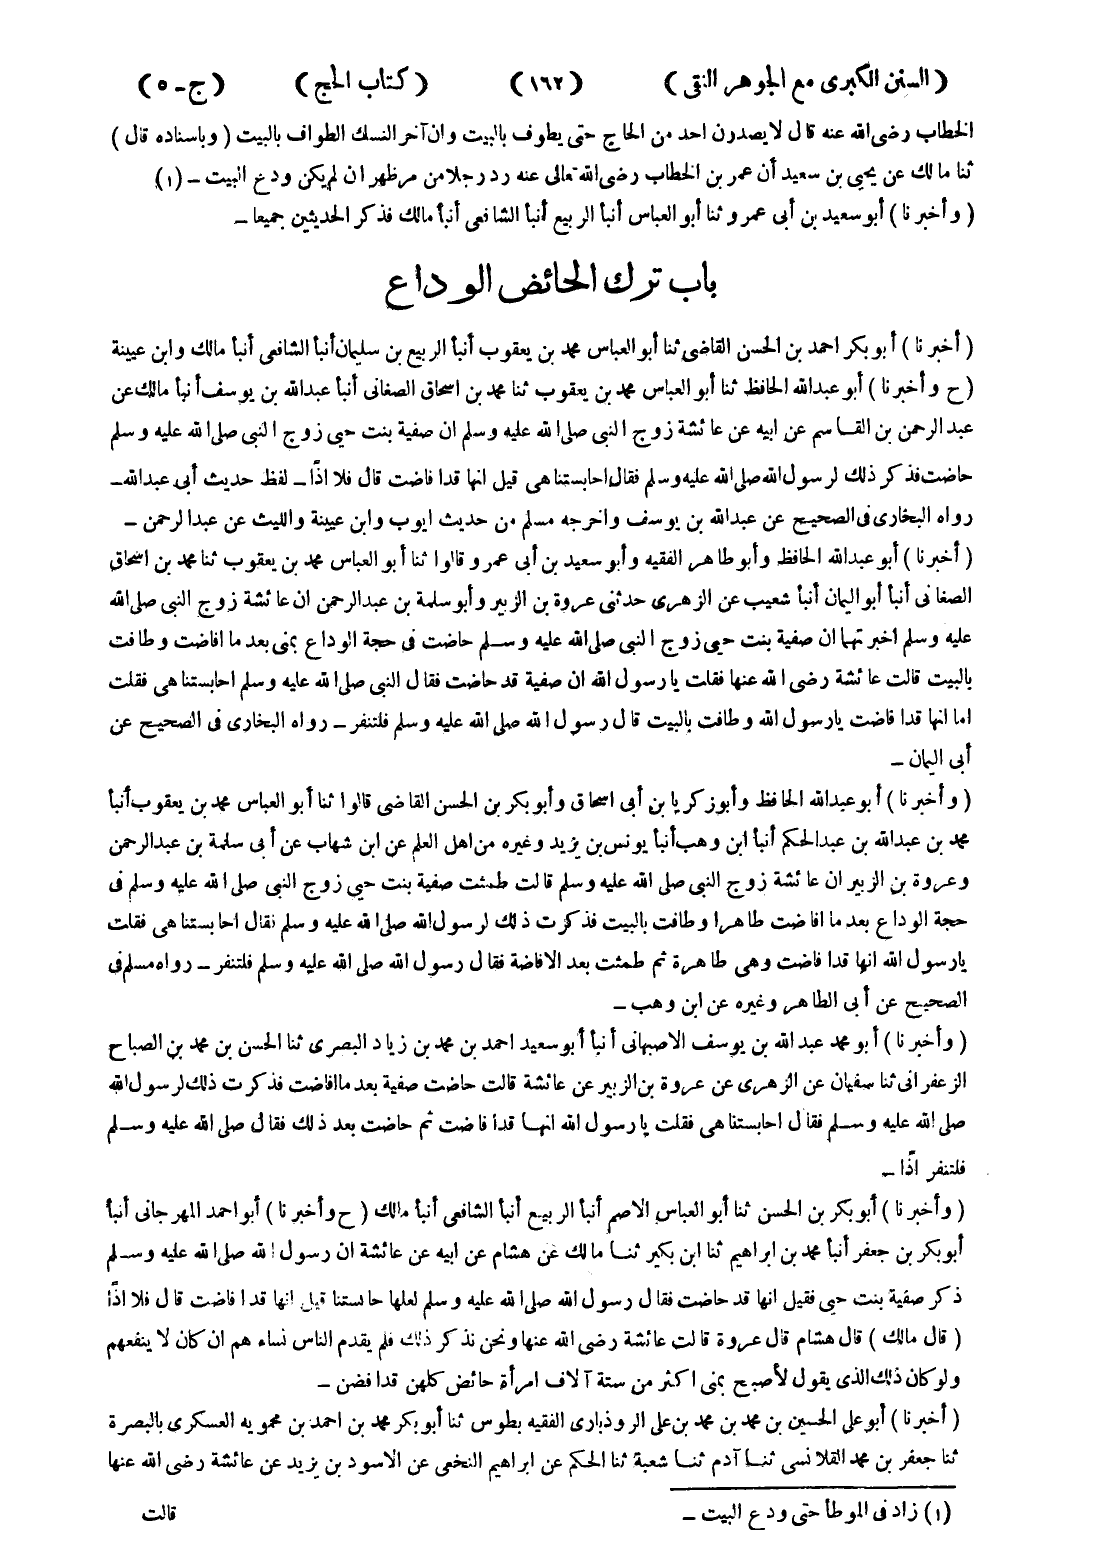 ( السنن الكبرى مع الجوهر النقى ) (١٦٢) ( كتاب الحج ) ( ج - ٥ )
الخطاب رضى الله عنه قال لا يصدرن احد من الحاج حتى يطوف بالبيت وان آخر النسك الطواف بالبيت ( وباسناده قال )
ثنا مالك عن يحيى بن سعيد أن عمر بن الخطاب رضى الله تعالى عنه رد رجلا من مر ظهر ان لم يكن ودع البيت - (١)
( وأخبرنا ) أبو سعيد بن أبى عمرو ثنا أبو العباس أنبأ الربيع أنبأ الشافعى أنبأ مالك فذكر الحديثين جميعا -
باب ترك الحائض الوداع
( أخبرنا ) أبو بكر احمد بن الحسن القاضى ثنا أبو العباس محمد بن يعقوب أنبأ الربيع بن سليمان أنبأ الشافعى أنبأ مالك وابن عيينة
( ح وأخبرنا ) أبو عبدالله الحافظ ثنا أبو العباس محمد بن يعقوب ثنا محمد بن اسحاق الصغانى أنبأ عبدالله بن يوسف أنبأ مالك عن
عبد الرحمن بن القاسم عن ابيه عن عائشة زوج النبى صلى الله عليه وسلم ان صفية بنت حيى زوج النبى صلى الله عليه وسلم
حاضت فذكر ذلك لرسول الله صلى الله عليه وسلم فقال احابستنا هى قيل انها قد افاضت قال فلا اذًا - لفظ حديث أبى عبدالله -
رواه البخارى فى الصحيح عن عبدالله بن يوسف واخرجه مسلم من حديث ايوب وابن عيينة والليث عن عبد الرحمن -
( أخبرنا ) أبو عبدالله الحافظ وأبو طاهر الفقيه وأبو سعيد بن أبى عمرو قالوا ثنا أبو العباس محمد بن يعقوب ثنا محمد بن اسحاق
الصغانى أنبأ أبو اليمان أنبأ شعيب عن الزهرى حدثنى عروة بن الزبير وأبو سلمة بن عبدالرحمن ان عائشة زوج النبى صلى الله
عليه وسلم اخبرتهما ان صفية بنت حيى زوج النبى صلى الله عليه وسلم حاضت فى حجة الوداع بمنى بعد ما افاضت وطافت
بالبيت قالت عائشة رضى الله عنها فقلت يا رسول الله ان صفية قد حاضت فقال النبى صلى الله عليه وسلم احابستنا هى فقلت
اما انها قد افاضت يارسول الله وطافت بالبيت قال رسول الله صلى الله عليه وسلم فلتنفر - رواه البخارى فى الصحيح عن
أبى اليمان -
( وأخبرنا ) أبو عبدالله الحافظ وأبو زكريا بن أبى اسحاق وأبو بكر بن الحسن القاضى قالوا ثنا أبو العباس محمد بن يعقوب أنبأ
محمد بن عبدالله بن عبدالحكم أنبأ ابن وهب أنبأ يونس بن يزيد وغيره من اهل العلم عن ابن شهاب عن أبى سلمة بن عبدالرحمن
وعروة بن الزبير ان عائشة زوج النبى صلى الله عليه وسلم قالت طمثت صفية بنت حيى زوج النبى صلى الله عليه وسلم فى
حجة الوداع بعد ما افاضت طاهرا وطافت بالبيت فذكرت ذلك لرسول الله صلى الله عليه وسلم نقال احابستنا هى فقلت
يارسول الله انها قد افاضت وهى طاهرة ثم طمثت بعد الافاضة فقال رسول الله صلى الله عليه وسلم فلتنفر - رواه مسلم فى
الصحيح عن أبى الطاهر وغيره عن ابن وهب -
( وأخبرنا ) أبو محمد عبد الله بن يوسف الاصبهانى أنبأ أبو سعيد احمد بن محمد بن زياد البصرى ثنا الحسن بن محمد بن الصباح
الزعفرانى ثنا سفيان عن الزهرى عن عروة بن الزبير عن عائشة قالت حاضت صفية بعد ما افاضت فذكرت ذلك لرسول الله
صلى الله عليه وسلم فقال احابستنا هى فقلت يا رسول الله انها قد افاضت ثم حاضت بعد ذلك فقال صلى الله عليه وسلم
فلتنفر اذًا -
( وأخبرنا ) أبو بكر بن الحسن ثنا أبو العباس الاصم أنبأ الربيع أنبأ الشافعى أنبأ مالك ( ح وأخبرنا ) أبو احمد المهرجانى أنبأ
أبو بكر بن جعفر أنبأ محمد بن ابراهيم ثنا ابن بكير ثنا مالك عن هشام عن ابيه عن عائشة ان رسول الله صلى الله عليه وسلم
ذكر صفية بنت حيى فقيل انها قد حاضت فقال رسول الله صلى الله عليه وسلم لعلها حابستنا قيل انها قد افاضت قال فلا اذًا
( قال مالك ) قال هشام قال عروة قالت عائشة رضى الله عنها ونحن نذكر ذلك فلم يقدم الناس نساء هم ان كان لا ينفعهم
ولو كان ذلك الذى يقول لأصبح بمنى اكثر من ستة آلاف امرأة حائض كلهن قد افضن -
( أخبرنا ) أبو على الحسين بن محمد بن محمد بن على الروذبارى الفقيه بطوس ثنا أبو بكر محمد بن احمد بن محمويه العسكرى بالبصرة
ثنا جعفر بن محمد القلانسى ثنا آدم ثنا شعبة ثنا الحكم عن ابراهيم النخعى عن الاسود بن يزيد عن عائشة رضى الله عنها
(١) زاد فى الموطأ حتى ودع البيت -
قالت